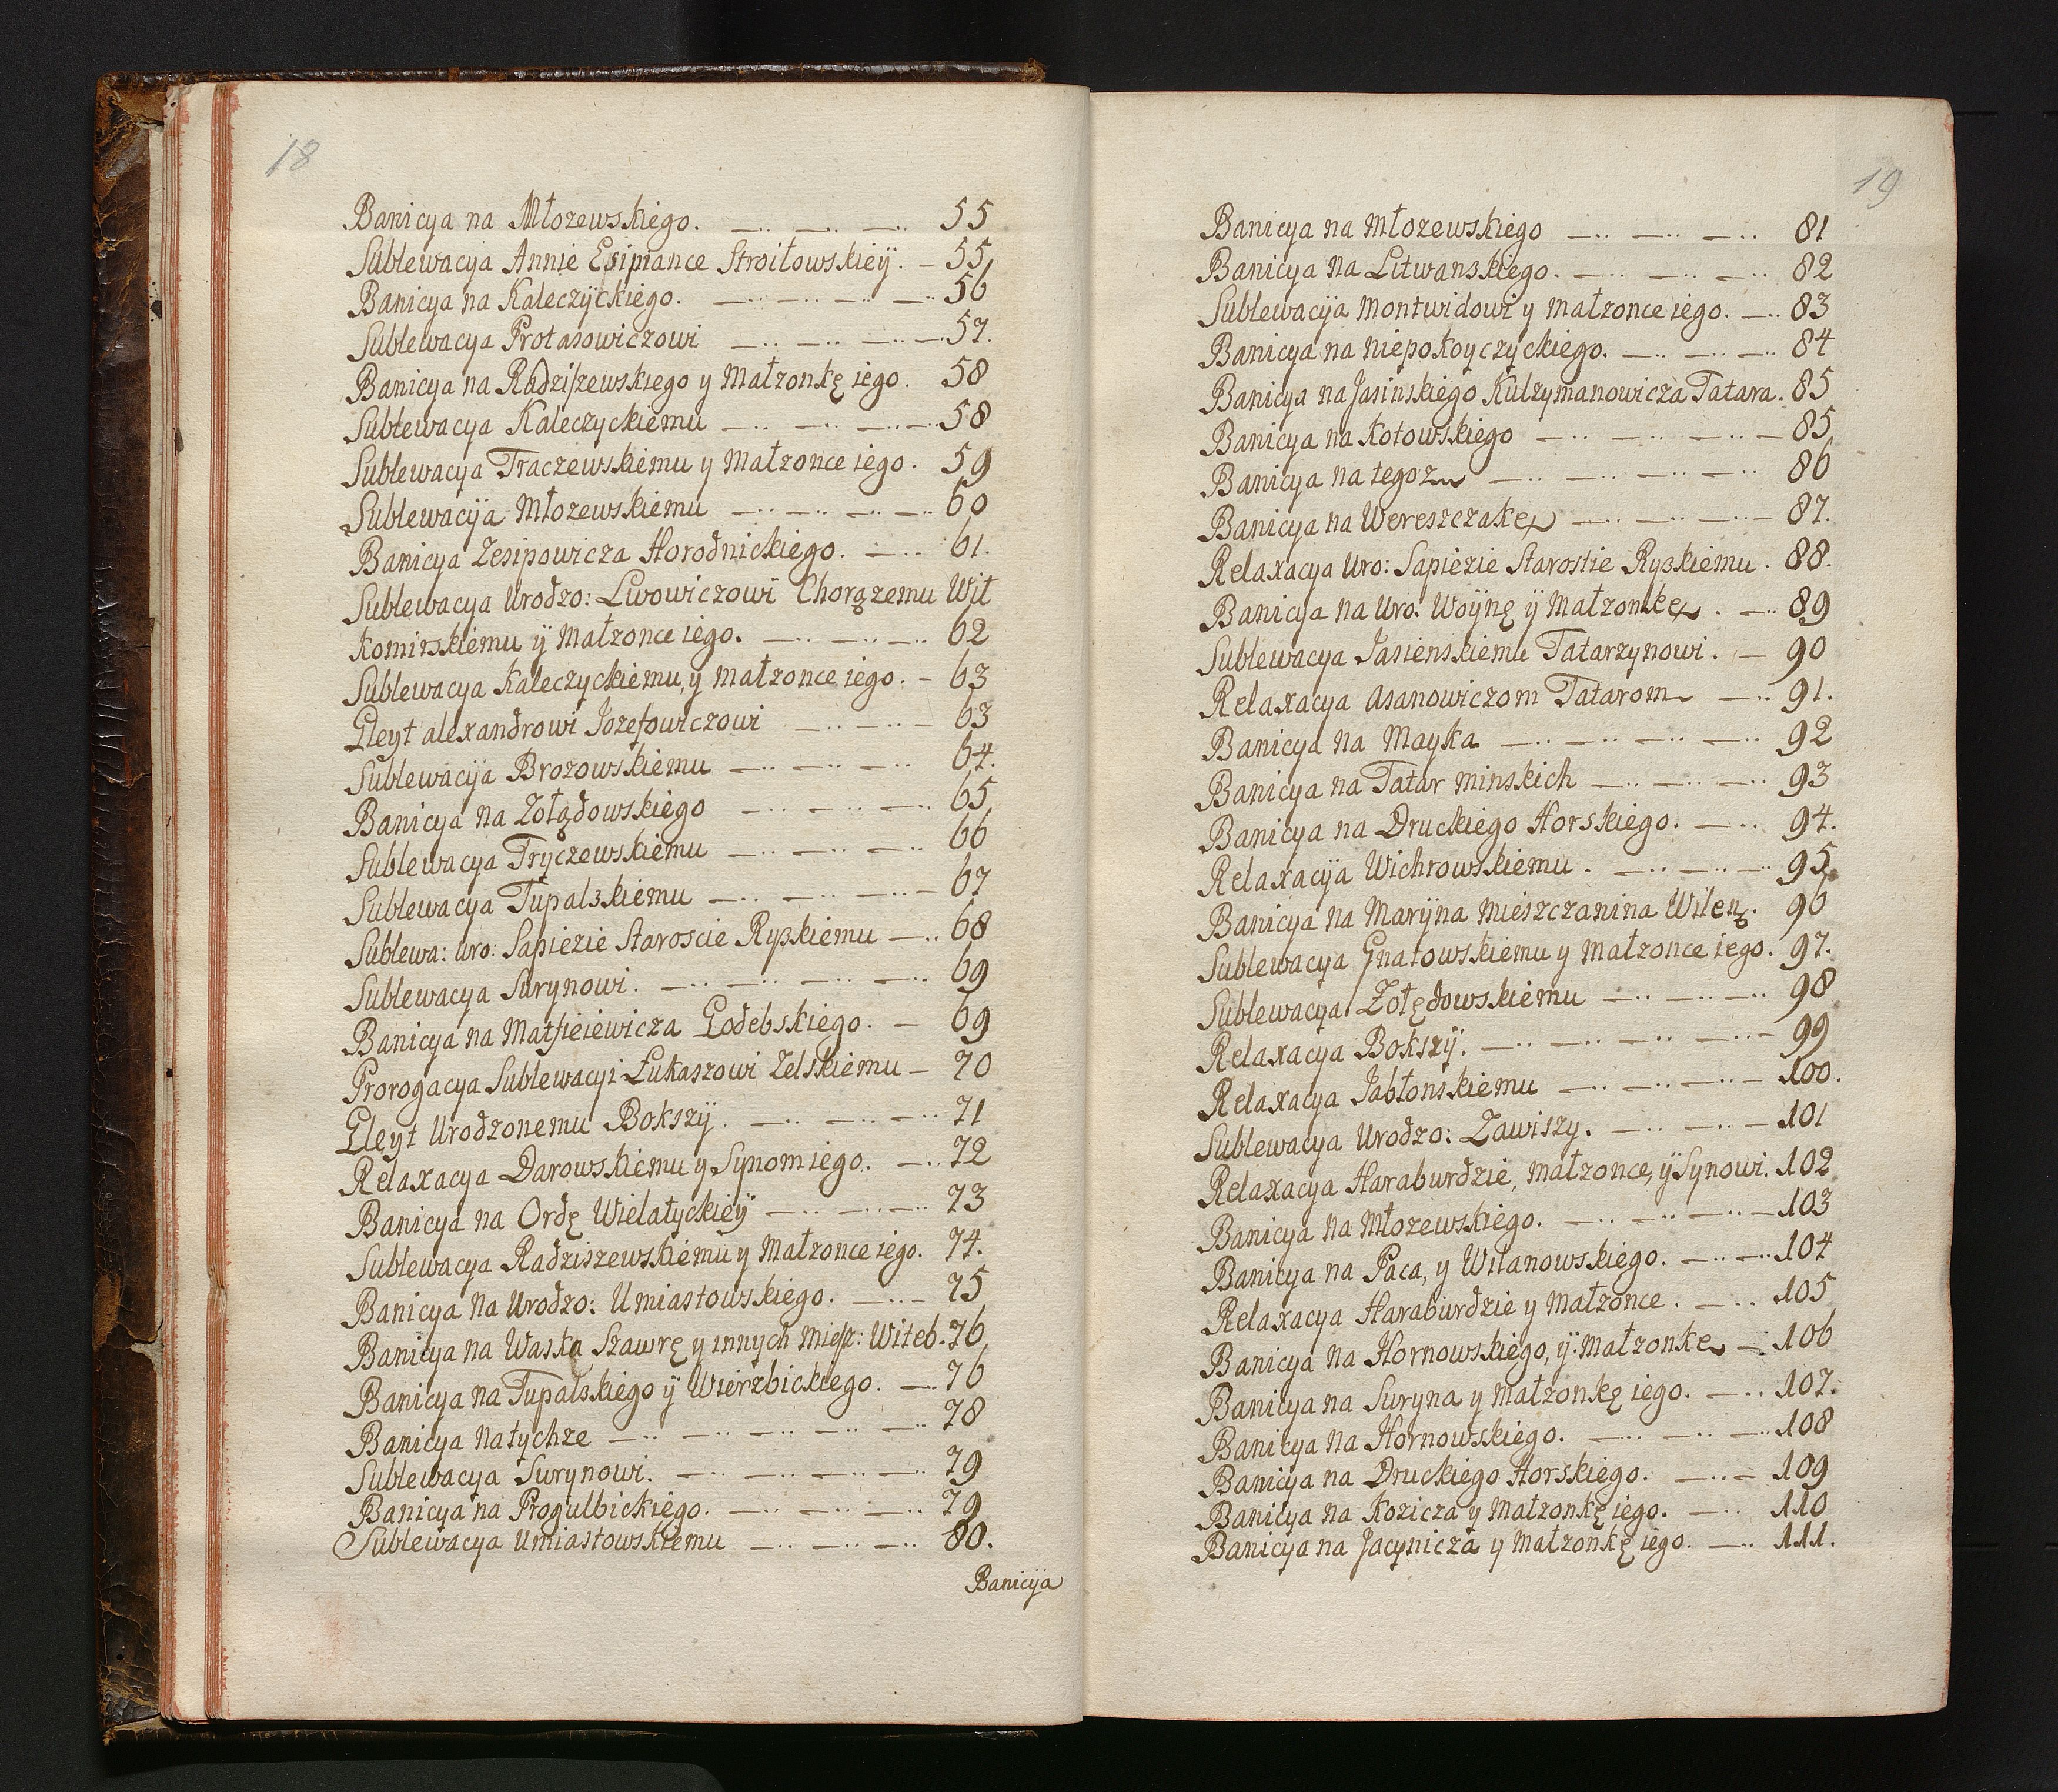 18
Banicya na Młozewskiego. 55
Sublewacya Annie Esipiance Stroiłowskieÿ. 55
Banicya na Kaleczÿckiego. 56
Sublewacya Protasowiczowi 57.
Banicya na Radziszewskiego y Małzonkę iego. 58
Sublewacya Kaleczyckiemu 58
Sublewacya Traczewskiemu y Małzonce iego. 59
Sublewacÿa Młozewskiemu 60
Banicya Zesipowicza Horodnickiego. 61.
Sublewacya Urodzo: Lwowiczowi Chorązemu Wił
komirskiemu ÿ Małzonce iego. 62
Sublewacya Kaleczyckiemu, y małzonce iego. 63
Gleyt alexandrowi Jozefowiczowi 63
Sublewacÿa Brozowskiemu 64.
Banicya na Zołądowskiego 65
Sublewacya Tryczewskiemu 66
Sublewacya Tupalskiemu 67
Sublewa: uro: Sapiezie Staroscie Ryskiemu 68
Sublewacya Surynowi. 69
Banicya na Matfieiewicza Godebskiego. 69
Prorogacya Sublewacyi Łukaszowi Zelskiemu 70
Gleyt Urodzonemu Bokszÿ. 71
Relaxacya Darowskiemu y Synom iego. 72
Banicya na Ordę Wielatyckieÿ 73
Sublewacya Radziszewskiemu y Małzonce iego. 74.
Banicya na Urodzo: Umiastowskiego. 75
Banicya na Waska Szawrę y innych miesz: Witeb. 76
Banicya na Tupalskiego ÿ Wierzbickiego. 76
Banicya natychze 78
Sublewacya Surynowi. 79
Banicya na Progulbickiego. 79
Sublewacya Umiastowskiemu 80.
Banicÿa
19
Banicya na Młozewskiego 81
Banicya na Litwanskiego. 82
Sublewacÿa Montwidowi y małzonce iego. 83
Banicya na niepokoyczyckiego. 84
Banicya na Jasinskiego Kulzymanowicza Tatara. 85
Banicya na Kotowskiego 85
Banicya na tegoz 86
Banicya na Wereszczakę 87.
Relaxacya Uro: Sapiezie Starostie Ryskiemu. 88.
Banicya na Uro: Woÿnę ÿ Małzonkę. 89
Sublewacya Jasienskiemu Tatarzynowi. 90
Relaxacya Asanowiczom Tatarom 91.
Banicya na Mayka 92
Banicya na Tatar minskich 93
Banicya na Druckiego Horskiego. 94.
Relaxacÿa Wichrowskiemu. 95
Banicya na Marÿna mieszczanina Wileń. 96
Sublewacya Gnatowskiemu y Małzonce iego. 97.
Sublewacya Zołędowskiemu 98
Relaxacya Bokszÿ. 99
Relaxacya Jabłonskiemu 100.
Sublewacya Urodzo: Zawiszy. 101
Relaxacya Haraburdzie, małzonce, ÿ Synowi. 102
Banicya na Młozewskiego. 103
Banicya na Paca, y Wilanowskiego. 104
Relaxacya Haraburdzie y Małzonce. 105
Banicya na Hornowskiego, ÿ Małzonkę 106
Banicya na Suryna y Małzonkę iego. 107.
Banicya na Hornowskiego. 108
Banicya na Druckiego Horskiego. 109
Banicya na Kozicza y Małzonkę iego. 110
Banicya na Jacynicza y Małzonkę iego. 111.